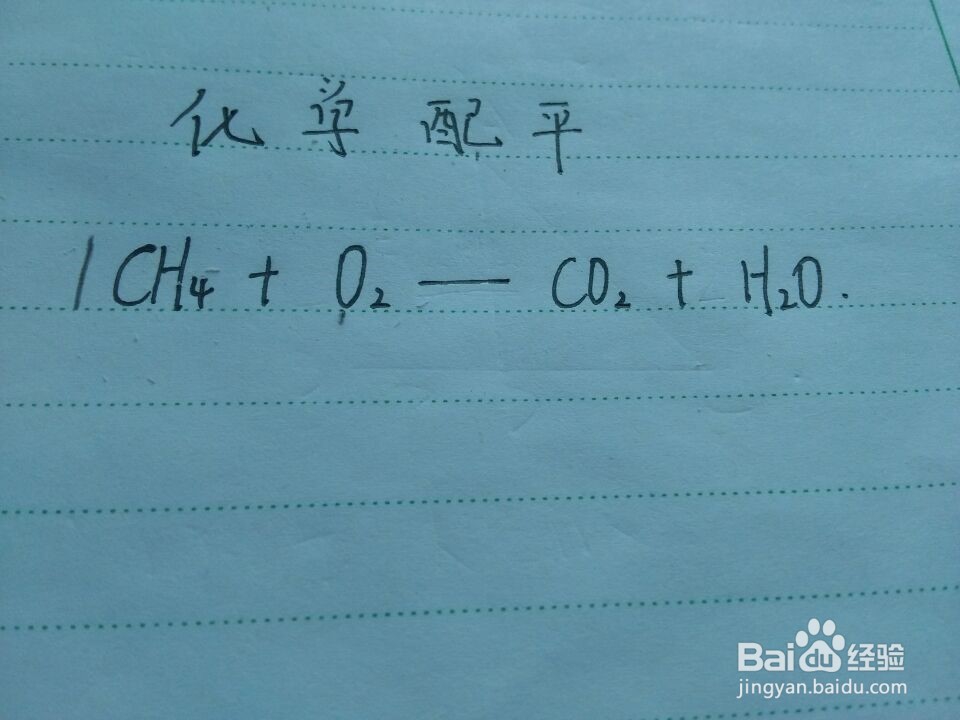 化学配平
1CH₄ + O₂ — CO₂ + H₂O.
Baidu经验
jingyan.baidu.com